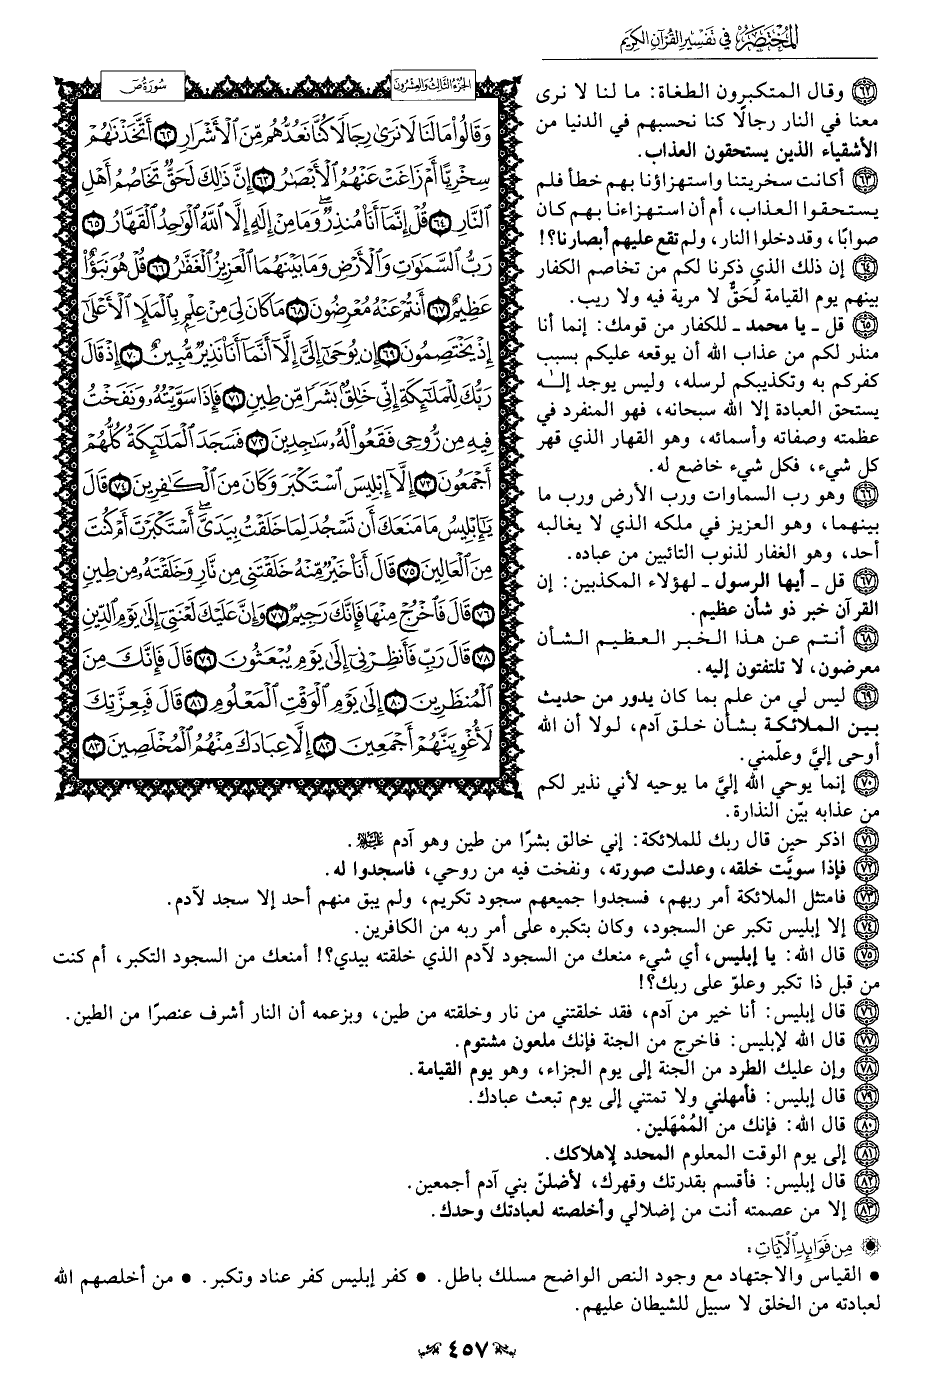 المختصر في تفسير القرآن الكريم
الجزء الثالث والعشرون
سورة ص
وَقَالُواْ مَا لَنَا لَا نَرَىٰ رِجَالٗا كُنَّا نَعُدُّهُم مِّنَ ٱلۡأَشۡرَارِ ٦٢ أَتَّخَذۡنَٰهُمۡ
سِخۡرِيًّا أَمۡ زَاغَتۡ عَنۡهُمُ ٱلۡأَبۡصَٰرُ ٦٣ إِنَّ ذَٰلِكَ لَحَقّٞ تَخَاصُمُ أَهۡلِ
ٱلنَّارِ ٦٤ قُلۡ إِنَّمَآ أَنَا۠ مُنذِرٞۖ وَمَا مِنۡ إِلَٰهٍ إِلَّا ٱللَّهُ ٱلۡوَٰحِدُ ٱلۡقَهَّارُ ٦٥
رَبُّ ٱلسَّمَٰوَٰتِ وَٱلۡأَرۡضِ وَمَا بَيۡنَهُمَا ٱلۡعَزِيزُ ٱلۡغَفَّٰرُ ٦٦ قُلۡ هُوَ نَبَؤٌاْ
عَظِيمٌ ٦٧ أَنتُمۡ عَنۡهُ مُعۡرِضُونَ ٦٨ مَا كَانَ لِيَ مِنۡ عِلۡمِۭ بِٱلۡمَلَإِ ٱلۡأَعۡلَىٰٓ
إِذۡ يَخۡتَصِمُونَ ٦٩ إِن يُوحَىٰٓ إِلَيَّ إِلَّآ أَنَّمَآ أَنَا۠ نَذِيرٞ مُّبِينٌ ٧٠ إِذۡ قَالَ
رَبُّكَ لِلۡمَلَٰٓئِكَةِ إِنِّي خَٰلِقُۢ بَشَرٗا مِّن طِينٖ ٧١ فَإِذَا سَوَّيۡتُهُۥ وَنَفَخۡتُ
فِيهِ مِن رُّوحِي فَقَعُواْ لَهُۥ سَٰجِدِينَ ٧٢ فَسَجَدَ ٱلۡمَلَٰٓئِكَةُ كُلُّهُمۡ
أَجۡمَعُونَ ٧٣ إِلَّآ إِبۡلِيسَ ٱسۡتَكۡبَرَ وَكَانَ مِنَ ٱلۡكَٰفِرِينَ ٧٤ قَالَ
يَٰٓإِبۡلِيسُ مَا مَنَعَكَ أَن تَسۡجُدَ لِمَا خَلَقۡتُ بِيَدَيَّۖ أَسۡتَكۡبَرۡتَ أَمۡ كُنتَ
مِنَ ٱلۡعَالِينَ ٧٥ قَالَ أَنَا۠ خَيۡرٞ مِّنۡهُ خَلَقۡتَنِي مِن نَّارٖ وَخَلَقۡتَهُۥ مِن طِينٖ
٧٦ قَالَ فَٱخۡرُجۡ مِنۡهَا فَإِنَّكَ رَجِيمٞ ٧٧ وَإِنَّ عَلَيۡكَ لَعۡنَتِيٓ إِلَىٰ يَوۡمِ ٱلدِّينِ
٧٨ قَالَ رَبِّ فَأَنظِرۡنِيٓ إِلَىٰ يَوۡمِ يُبۡعَثُونَ ٧٩ قَالَ فَإِنَّكَ مِنَ
ٱلۡمُنظَرِينَ ٨٠ إِلَىٰ يَوۡمِ ٱلۡوَقۡتِ ٱلۡمَعۡلُومِ ٨١ قَالَ فَبِعِزَّتِكَ
لَأُغۡوِيَنَّهُمۡ أَجۡمَعِينَ ٨٢ إِلَّا عِبَادَكَ مِنۡهُمُ ٱلۡمُخۡلَصِينَ ٨٣
٦٢ وقال المتكبرون الطغاة: ما لنا لا نرى
معنا في النار رجالًا كنا نحسبهم في الدنيا من
الأشقياء الذين يستحقون العذاب.
٦٣ أكانت سخريتنا واستهزاؤنا بهم خطأ فلم
يستحقوا العذاب، أم أن استهزاءنا بهم كان
صوابًا، وقد دخلوا النار، ولم تقع عليهم أبصارنا؟!
٦٤ إن ذلك الذي ذكرنا لكم من تخاصم الكفار
بينهم يوم القيامة لَحَقٌّ لا مرية فيه ولا ريب.
٦٥ قل ـ يا محمد ـ للكفار من قومك: إنما أنا
منذر لكم من عذاب الله أن يوقعه عليكم بسبب
كفركم به وتكذيبكم لرسله، وليس يوجد إلـٰه
يستحق العبادة إلا الله سبحانه، فهو المنفرد في
عظمته وصفاته وأسمائه، وهو القهار الذي قهر
كل شيء، فكل شيء خاضع له.
٦٦ وهو رب السماوات ورب الأرض ورب ما
بينهما، وهو العزيز في ملكه الذي لا يغالبه
أحد، وهو الغفار لذنوب التائبين من عباده.
٦٧ قل ـ أيها الرسول ـ لهؤلاء المكذبين: إن
القرآن خبر ذو شأن عظيم.
٦٨ أنتم عن هذا الخبر العظيم الشأن
معرضون، لا تلتفتون إليه.
٦٩ ليس لي من علم بما كان يدور من حديث
بين الملائكة بشأن خلق آدم، لولا أن الله
أوحى إليَّ وعلّمني.
٧٠ إنما يوحي الله إليَّ ما يوحيه لأني نذير لكم
من عذابه بيّن النذارة.
٧١ اذكر حين قال ربك للملائكة: إني خالق بشرًا من طين وهو آدم عليه السلام.
٧٢ فإذا سويَّت خلقه، وعدلت صورته، ونفخت فيه من روحي، فاسجدوا له.
٧٣ فامتثل الملائكة أمر ربهم، فسجدوا جميعهم سجود تكريم، ولم يبق منهم أحد إلا سجد لآدم.
٧٤ إلا إبليس تكبر عن السجود، وكان بتكبره على أمر ربه من الكافرين.
٧٥ قال الله: يا إبليس، أي شيء منعك من السجود لآدم الذي خلقته بيدي؟! أمنعك من السجود التكبر، أم كنت
من قبل ذا تكبر وعلوّ على ربك؟!
٧٦ قال إبليس: أنا خير من آدم، فقد خلقتني من نار وخلقته من طين، وبزعمه أن النار أشرف عنصرًا من الطين.
٧٧ قال الله لإبليس: فاخرج من الجنة فإنك ملعون مشتوم.
٧٨ وإن عليك الطرد من الجنة إلى يوم الجزاء، وهو يوم القيامة.
٧٩ قال إبليس: فأمهلني ولا تمتني إلى يوم تبعث عبادك.
٨٠ قال الله: فإنك من المُمْهَلين.
٨١ إلى يوم الوقت المعلوم المحدد لإهلاكك.
٨٢ قال إبليس: فأقسم بقدرتك وقهرك، لأضلنّ بني آدم أجمعين.
٨٣ إلا من عصمته أنت من إضلالي وأخلصته لعبادتك وحدك.
مِن فَوَائِدِ الْآيَاتِ:
• القياس والاجتهاد مع وجود النص الواضح مسلك باطل. • كفر إبليس كفر عناد وتكبر. • من أخلصهم الله
لعبادته من الخلق لا سبيل للشيطان عليهم.
٤٥٧